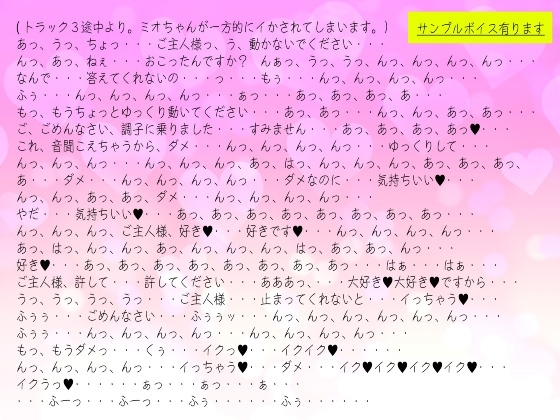 (トラック3途中より。ミオちゃんが一方的にイかされてしまいます。)
サンプルボイス有ります
あっ、うっ、ちょっ・・・ご主人様っ、う、動かないでください・・・
んっ、あっ、ねぇ・・・おこったんですか？ んぁっ、うっ、うっ、んっ、んっ、んっ、んっ・・・
なんで・・・答えてくれないの・・・っ・・・もぅ・・・んっ、んっ、んっ、んっ・・・
ふぅ・・・んっ、んっ、んっ、んっ・・・ぁっ・・・あっ、あっ、あっ、あ・・・
もっ、もうちょっとゆっくり動いてください・・・あっ、あっ・・・んっ、んっ、あっ、あっ・・・
ご、ごめんなさい、調子に乗りました・・・すみません・・・あっ、あっ、あっ、あっ♥・・・
これ、音聞こえちゃうから、ダメ・・・んっ、んっ、んっ、んっ・・・ゆっくりして・・・
んっ、んっ、んっ・・・んっ、んっ、んっ、あっ、はっ、んっ、んっ、んっ、あっ、あっ、あっ、
あ・・・ダメ・・・んっ、んっ、んっ、んっ・・・ダメなのに・・・気持ちいい♥・・・
んっ、んっ、あっ、あっ、ダメ・・・んっ、んっ、んっ、んっ・・・
やだ・・・気持ちいい♥・・・あっ、あっ、あっ、あっ、あっ、あっ、あっ、あっ・・・
んっ、んっ、んっ、ご主人様、好き♥・・・好きです♥・・・んっ、んっ、んっ、んっ・・・
あっ、はっ、んっ、んっ、あっ、んっ、んっ、んっ、はっ、あっ、あっ、んっ・・・
好き♥・・・あっ、あっ、あっ、あっ、あっ、あっ、あっ、あっ・・・はぁ・・・はぁ・・・
ご主人様、許して・・・許してください・・・あああっ、・・・大好き♥大好き♥ですから・・・
うっ、うっ、うっ、うっ・・・ご主人様・・・止まってくれないと・・・イっちゃう♥・・・
ふぅぅ・・・ごめんなさい・・・ふぅぅッ・・・んっ、んっ、んっ、んっ、んっ、んっ・・・
ふぅぅ・・・んっ、んっ、んっ、んっ・・・んっ、んっ、んっ、んっ・・・
もっ、もうダメっ・・・くぅ・・・イクっ♥・・・イクイク♥・・・・・・
んっ、んっ、んっ、んっ・・・イっちゃう♥・・・ダメ・・・イク♥イク♥イク♥イク♥・・・
イクうっ♥・・・・・・・ぁっ・・・ぁっ・・・ぁ・・・
・・・ふーっ・・・ふーっ・・・ふぅ・・・・・・ふぅ・・・・・・